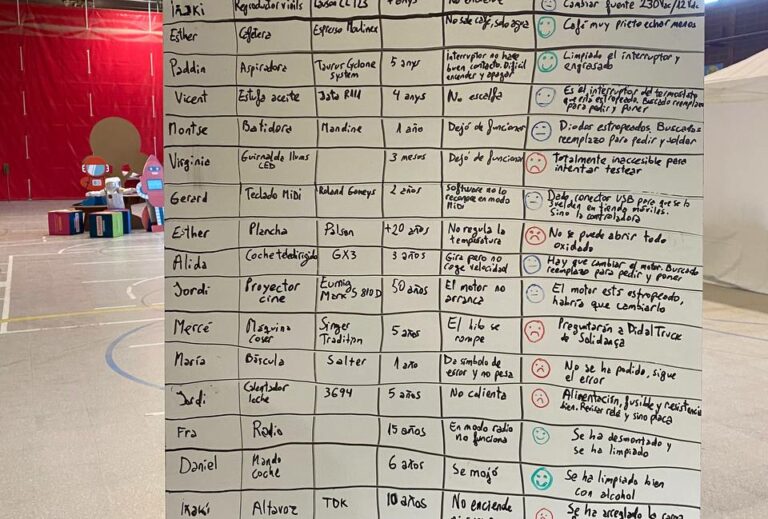 Iñaki Reproductor vinils
Cambiar fuente 230Vac/12Vdc
Esther Cafetera Espresso Moulinex No sale café, solo agua Café muy prieto echar menos
Paddin Aspiradora Taurus Cyclone system 5 anys Interruptor no hace buen contacto. Difícil encender y apagar Limpiado el interruptor y engrasado
Vicent Estufa aceite 4 anys No escalfa Es el interruptor del termostato que está estropeado. Buscado reemplazo para pedir y poner
Montse Batidora Mandine 1 año Dejó de funcionar Diodos estropeados. Buscados reemplazo para pedir y soldar
Virginia Guirnalda llums LED 3 mesos Dejó de funcionar Totalmente inaccesible para intentar testear
Gerard Teclado MiDi Roland 2 años software no lo reconoce en modo MiDi conector USB para que se lo suelden en tienda móviles. Sino la controladora
Esther Plancha Palson +20 años No regula la temperatura No se puede abrir todo oxidado
Alida Coche teledirigido GX3 3 años Gira pero no coge velocidad Hay que cambiar el motor. Buscado reemplazo para pedir y poner
Jordi Proyector cine Eumig Mark S 810 D 50 años El motor no arranca El motor está estropeado, habría que cambiarlo
Mercé Máquina coser Singer Tradition 5 años El hilo se rompe Preguntarán a Didal Truck de Solidança
María Báscula Salter 1 año Da símbolo de error y no pesa No se ha podido, sigue el error
Jordi Calentador leche 3694 5 años No calienta Alimentación, fusible y resistencia bien. Revisar relé y sino placa
Fra Radio 15 años En modo radio no funciona Se ha desmontado y se ha limpiado
Daniel Mando coche 6 años Se mojó Se ha limpiado bien con alcohol
Iñaki Altavoz TDK 10 años No enciende Se ha arreglado la